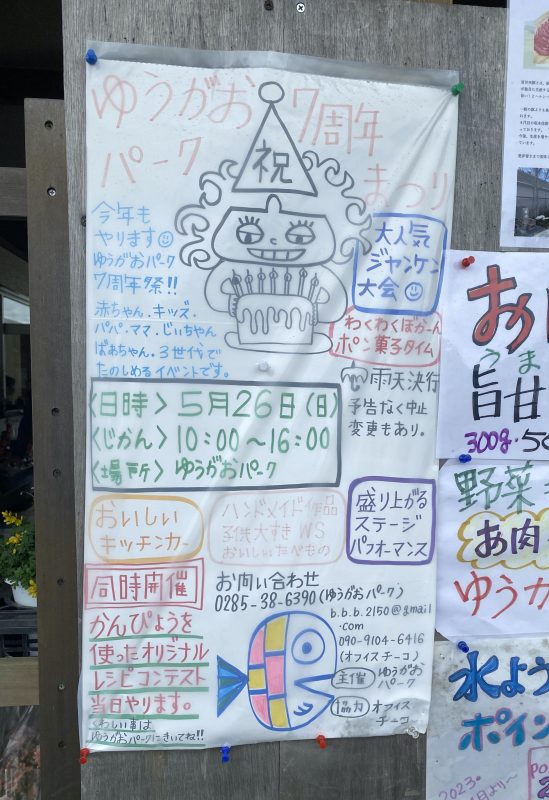 ゆうがお 7周年
パーク まつり
祝
今年も
やります
ゆうがおパーク
7周年祭!!
赤ちゃん・キッズ・
パパ・ママ・じいちゃん
ばあちゃん・3世代で
たのしめるイベントです。
大人気
ジャンケン
大会
わくわくぼかーん
ポン菓子タイム
雨天決行
予告なく中止
変更もあり。
〈日時〉5月26日(日)
〈じかん〉10:00〜16:00
〈場所〉ゆうがおパーク
おいしい
キッチンカー
ハンドメイド作品
子供大すきWS
おいしいたべもの
盛り上がる
ステージ
パフォーマンス
同時開催
かんぴょうを
使ったオリジナル
レシピコンテスト
当日やります。
くわしい事は
ゆうがおパークにきいてね!!
お問い合わせ
0285-38-6390(ゆうがおパーク)
b.b.b.2150@gmail
.com
090-9104-6416
(オフィスチーコ)
主催 ゆうがお
パーク
協力 オフィス
チーコ
うま
旨甘
300g・50
野菜
お肉
ゆうか
水よう
ポイン
2023.
月より〜